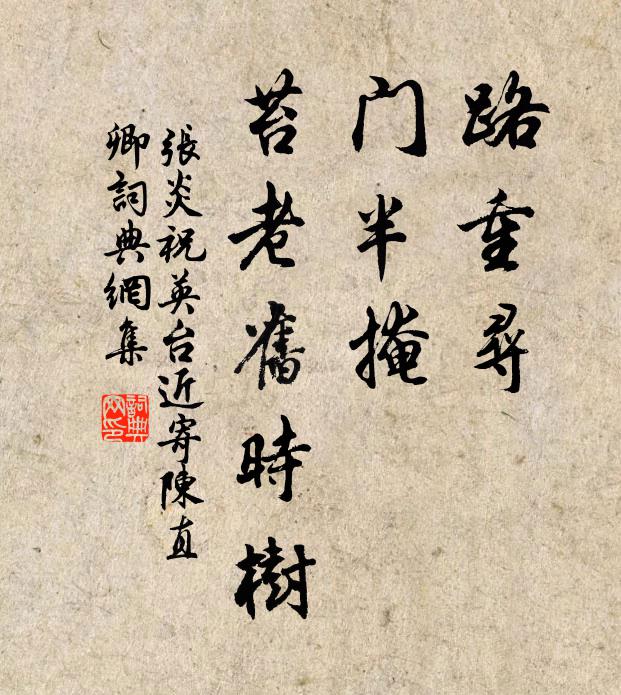 路重尋
门半掩
苔老舊時樹
張炎祝英台近寄陳直
卿詞典網集
詞典
网印